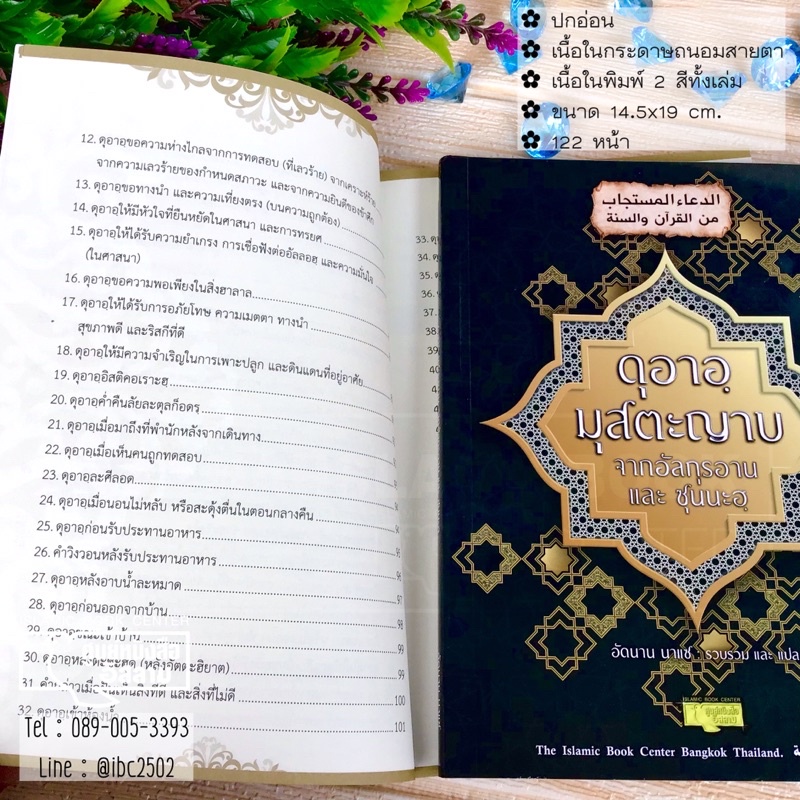 ✿ ปกอ่อน
✿ เนื้อในกระดาษถนอมสายตา
✿ เนื้อในพิมพ์ 2 สีทั้งเล่ม
✿ ขนาด 14.5x19 cm.
✿ 122 หน้า
12. ดุอาอฺขอความห่างไกลจากการทดสอบ (ที่เลวร้าย) จากเคราะห์ร้าย
จากความเลวร้ายของกำหนดสภาวะ และจากความยินดีของข้าศึก
13. ดุอาอฺขอทางนำ และความเที่ยงตรง (บนความถูกต้อง)
14. ดุอาอฺให้มีหัวใจที่ยืนหยัดในศาสนา และการทรยศ
15. ดุอาอฺให้ได้รับความยำเกรง การเชื่อฟังต่ออัลลอฮฺ และความมั่นใจ
(ในศาสนา)
16. ดุอาอฺขอความพอเพียงในสิ่งฮาลาล
17. ดุอาอฺให้ได้รับการอภัยโทษ ความเมตตา ทางนำ
สุขภาพดี และริสกีที่ดี
18. ดุอาอฺให้มีความจำเริญในการเพาะปลูก และดินแดนที่อยู่อาศัย
19. ดุอาอฺอิสติคอเราะฮฺ
20. ดุอาอฺค่ำคืนลัยละตุลก็อดรฺ
21. ดุอาอฺเมื่อมาถึงที่พำนักหลังจากเดินทาง
22. ดุอาอฺเมื่อเห็นคนถูกทดสอบ
23. ดุอาอฺละศีลอด
24. ดุอาอฺเมื่อนอนไม่หลับ หรือสะดุ้งตื่นในตอนกลางคืน 94
25. ดุอาอฺก่อนรับประทานอาหาร 95
26. คำวิงวอนหลังรับประทานอาหาร 96
27. ดุอาอฺหลังอาบน้ำละหมาด 97
28. ดุอาอฺก่อนออกจากบ้าน 98
29. ดุอาอฺขณะเข้าบ้าน 99
30. ดุอาอฺหลังตะชะฮุด (หลังอัตตะฮิยาต) 99
31. คำกล่าวเมื่อฝันเห็นสิ่งที่ดี และสิ่งที่ไม่ดี 100
32. ดุอาอฺเข้าห้องน้ำ 101
33. ดุ
34. ดุ
35.
36.
الدعاء المستجاب
من القرآن والسنة
ดุอาอฺ
มุสตะญาบ
จากอัลกุรอาน
และ ซุนนะฮฺ
อัดนาน นาแซ : รวบรวม และ แปล
ISLAMIC BOOK CENTER
ศูนย์หนังสือ
อิสลาม
The Islamic Book Center Bangkok Thailand.
CENTER
ศูนย์หนังสือ
อิสลาม
Tel : 089-005-3393
Line : @ibc2502